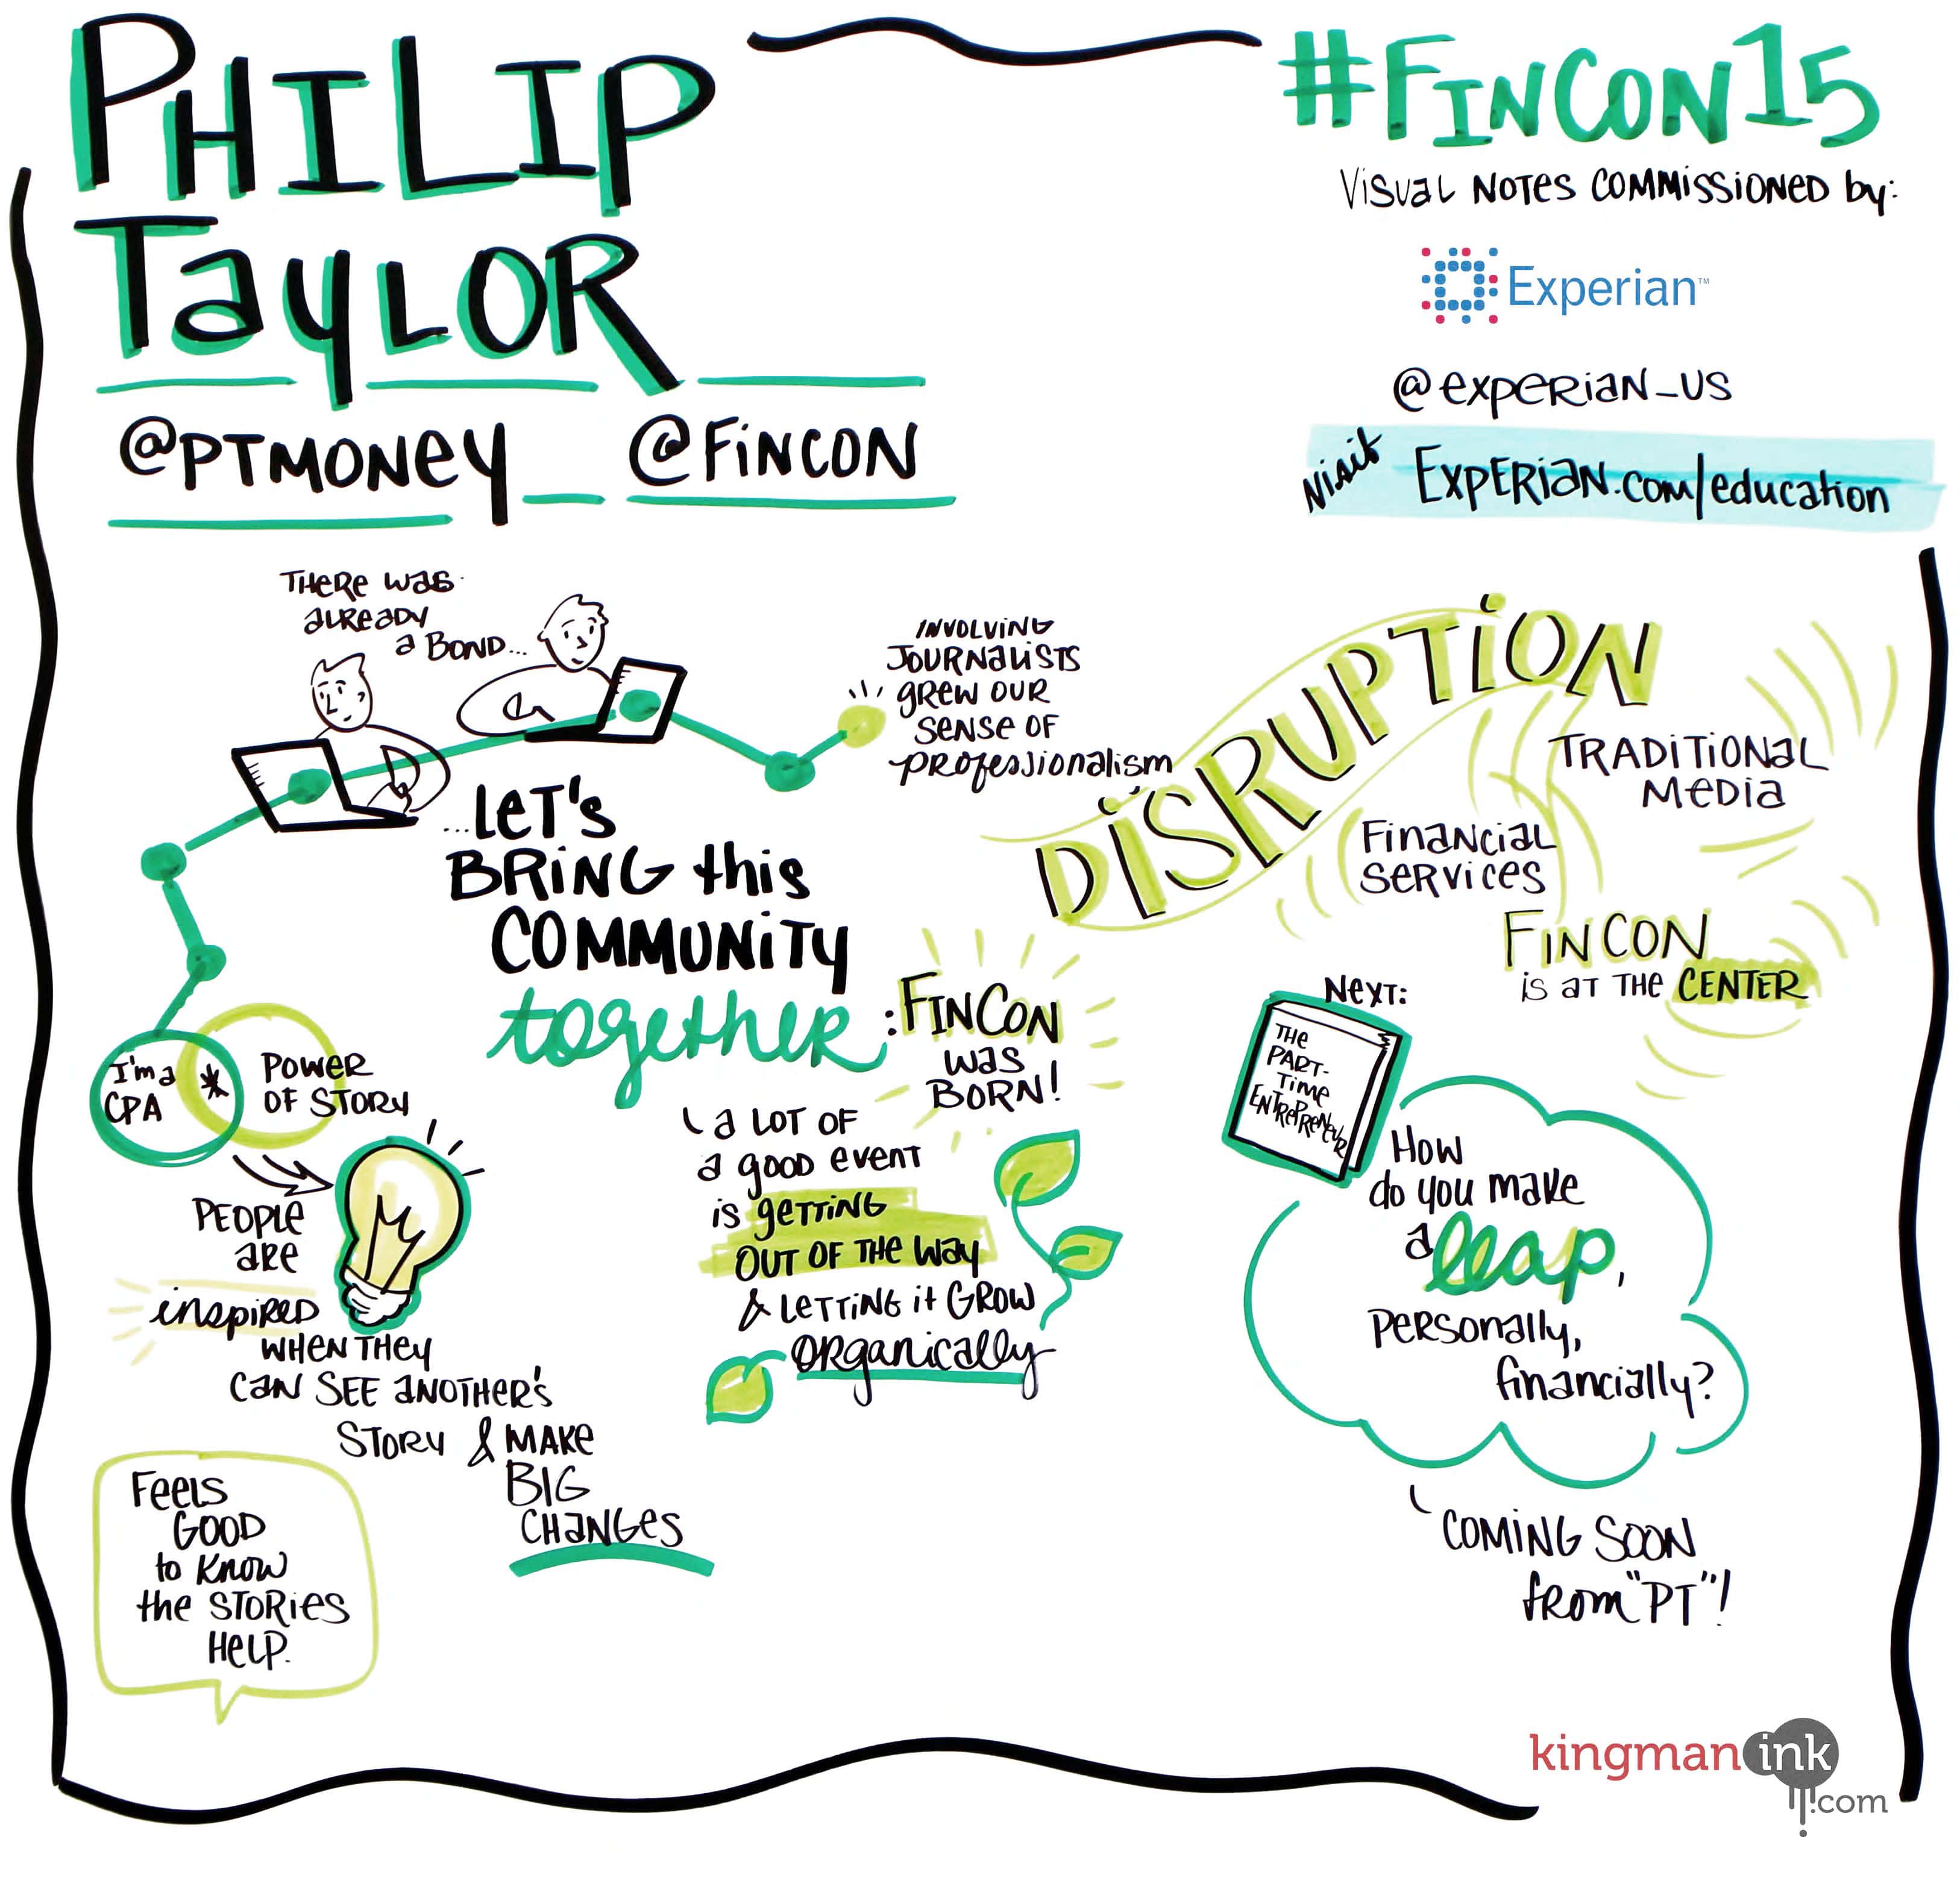 PHILIP
TAYLOR
@PTMONEY @FINCON
#FINCON15
VISUAL NOTES COMMISSIONED by:
Experian™
@EXPERIAN_US
Visit EXPERIAN.com/education
THERE WAS
ALREADY
A BOND...
...LET'S
BRING this
COMMUNITY
together:
FINCON
WAS
BORN!
INVOLVING
JOURNALISTS
GREW OUR
SENSE OF
PROFESSIONALISM
DISRUPTION
TRADITIONAL
MEDIA
FINANCIAL
SERVICES
FINCON
IS AT THE CENTER
I'm a
CPA
*
POWER
OF STORY
PEOPLE
ARE
inspired
WHEN THEY
CAN SEE ANOTHER'S
STORY & MAKE
BIG
CHANGES
FEELS
GOOD
to KNOW
the STORIES
HELP.
A LOT OF
A GOOD EVENT
IS GETTING
OUT OF THE WAY
& LETTING it GROW
ORGANICALLY
NEXT:
THE
PART-
TIME
ENTREPRENEUR
HOW
do you make
a leap,
PERSONALLY,
financially?
COMING SOON
from "PT"!
kingman ink
.com